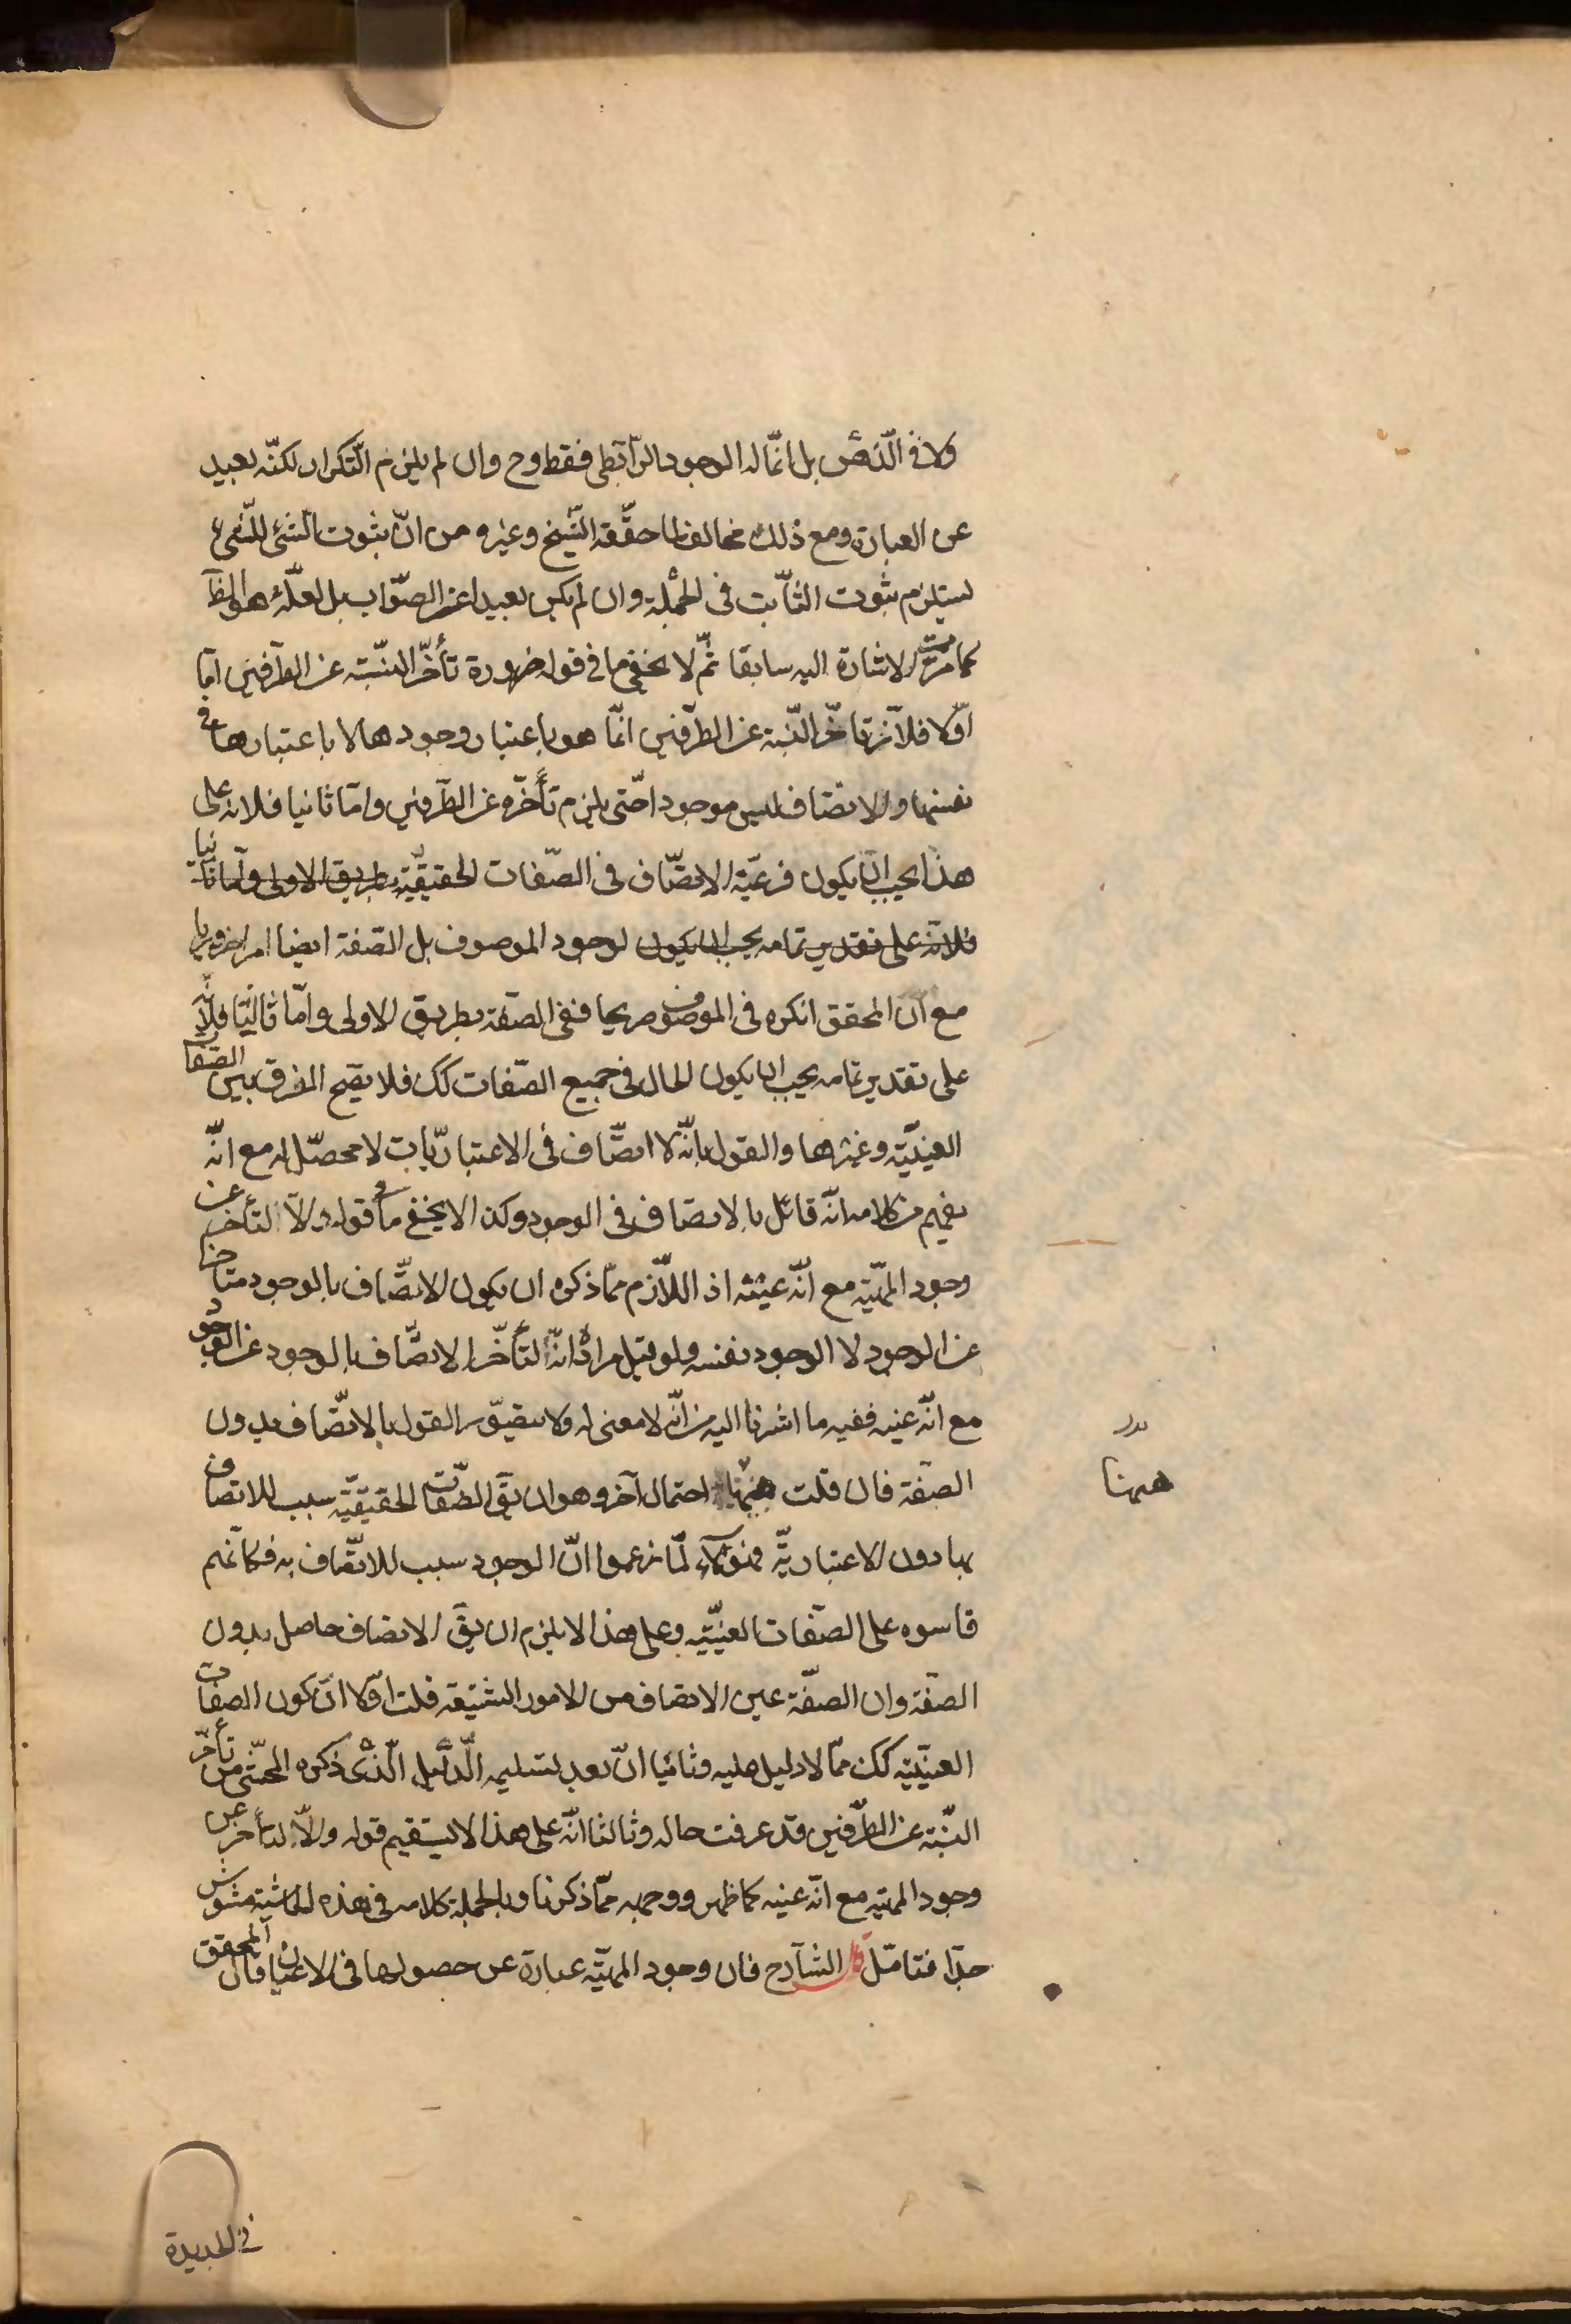 ولا في الذّهن بل انّما له الوجود الرّابطي فقط وح وان لم يلزم التّكرار لكنّه بعيد
عن العبارة ومع ذلك مخالف لما حقّقه الشّيخ وغيره من انّ ثبوت الشئ للشّئ
يستلزم ثبوت الثّابت في الجملة وان لم يكن بعيدا عن الصّواب بل لعلّه هو الحقّ
كما مرّت الاشارة اليه سابقا ثمّ لا يخفى ما في قوله ضرورة تأخّر النسبة عن الطّرفين امّا
اوّلا فلانّ تاخّر النّسبة عن الطرّفين انّما هو باعتبار وجودها لا باعتبارها في
نفسها والاتّصاف ليس موجودا حتّى يلزم تأخّره عن الطّرفين وامّا ثانيا فلانه على
هذا يجب ان يكون فرعيّة الاتّصاف في الصّفات الحقيقيّة بطريق الاولى وامّا ثانيا
فلانّه على تقدير تمامه يجب ان يكون لوجود الموصوف بل الصّفة ايضا امرا ضروريا
مع انّ المحقق انكره في الموصوف صريحا ففى الصّفة بطريق الاولى وامّا ثالثا فلانّه
على تقدير تمامه يجب ان يكون الحال في جميع الصّفات كك فلا يصّح الفرق بين الصّفات
العينيّة وغيرها والقول بانّه لا اتّصاف في الاعتباريّات لا محصّل له مع انّه
يفهم من كلامه انّه قائل بالاتصاف في الوجود وكذا لا يخفى ما في قوله والّا لتأخّر عن
وجود المهيّة مع انّه عينه اذ اللّازم ممّا ذكره ان يكون الاتّصاف بالوجود متاخرا
عن الوجود لا الوجود نفسه ولو قيل مراده انّه لتأخّر الاتّصاف بالوجود عن الوجود
مع انّه عينه ففيه ما اشرنا اليه من انّه لا معنى له ولا يتصّور القول بالاتّصاف بدون
الصّفة فان قلت ههنا احتمال آخر وهو ان يقّ الصّفات الحقيقيّة سبب للاتصاف
بها دون الاعتباريّة فهؤلاء لمّا زعموا انّ الوجود سبب للاتّصاف به فكانّهم
قاسوه على الصّفات العينيّة وعلى هذا لا يلزم ان يقّ الاتصاف حاصل بدون
الصّفة وان الصّفة عين الاتصاف من الامور الشنيعة قلت اوّلا انّ كون الصفات
العينيّة كك ممّا لا دليل عليه وثانيا انّ بعد تسليمه الدّليل الّذى ذكره المحشّى من تأخّر
النّسبة عن الطّرفين قد عرفت حاله وثالثا انّه على هذا لا يستقيم قوله والّا لتأخّر عن
وجود المهيّة مع انّه عينه كما ظهر ووجهه ممّا ذكرنا وبالجملة كلامه في هذه الحاشية مشوش
جدّا فتامّل قال الشّارح فان وجود المهيّة عبارة عن حصولها في الاعيان قال المحقق
بدر
ههنا
في الجديدة